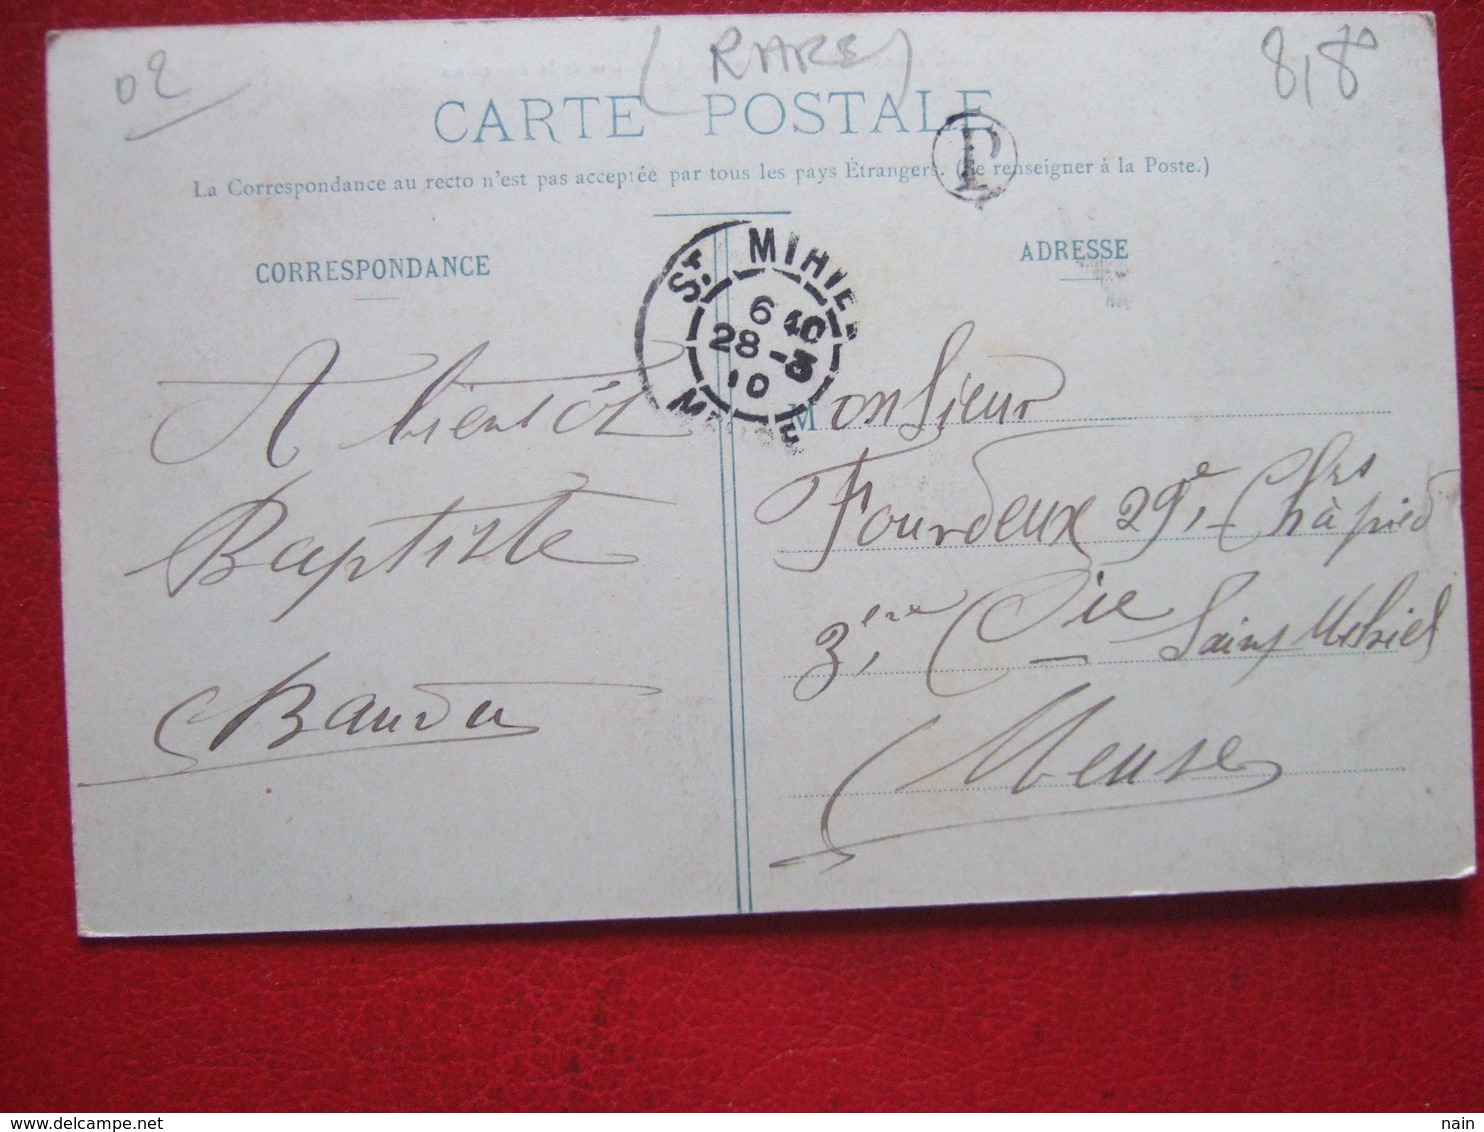 02
(RARE)
8,80
CARTE POSTALE
La Correspondance au recto n'est pas acceptée par tous les pays Étrangers. (Se renseigner à la Poste.)
CORRESPONDANCE
ADRESSE
ST MIHIEL
6 40
28 -3
10
MEUSE
A bientôt
Baptiste
Baudu
Monsieur
Fourdeux 29e, Chrs à pied
3,ère Cie Saint Mihiel
Meuse
nain_delcampe.net